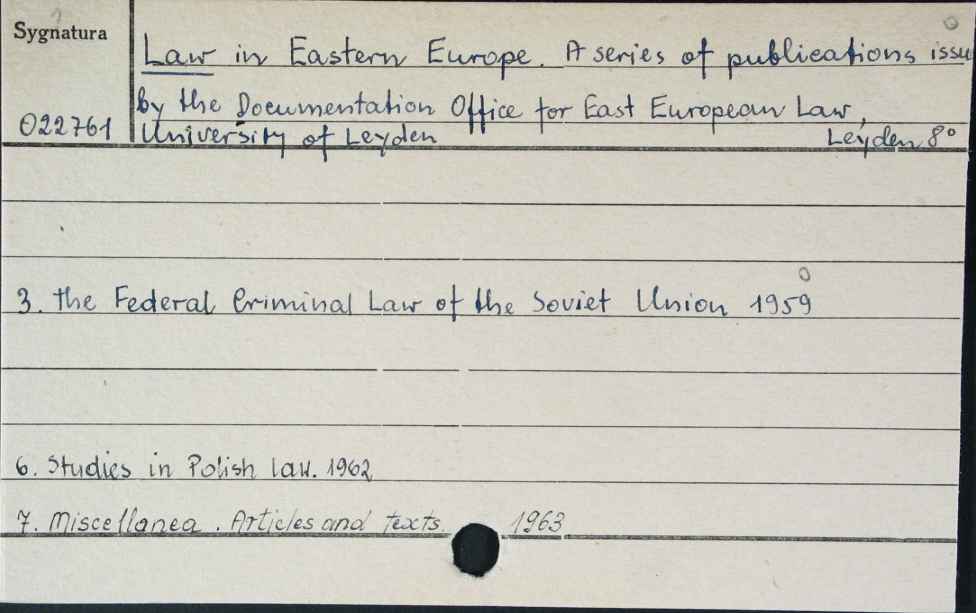 Sygnatura
Law in Eastern Europe. A series of publications issu
by the Documentation Office for East European Law,
022761 University of Leyden Leyden 8°
3. the Federal Criminal Law of the Soviet Union 1959
6. Studies in Polish law. 1962
7. Miscellanea. Articles and texts. 1963